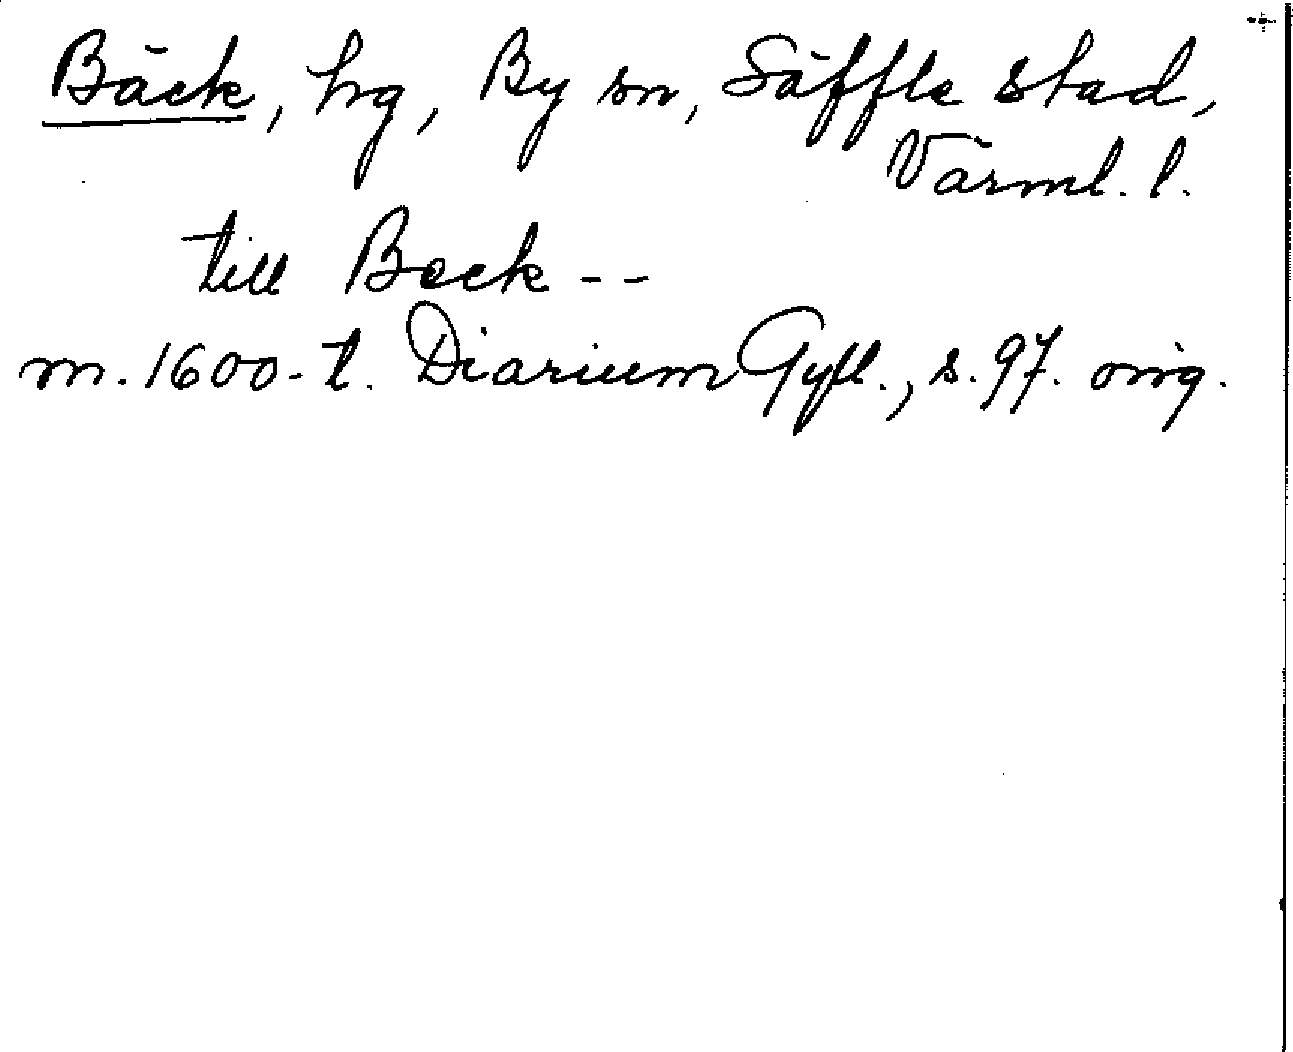 Bäck, hg, By sn, Säffle stad,
Värml. l.
till Beck --
m. 1600-t. Diarium Gyll., s. 97. orig.